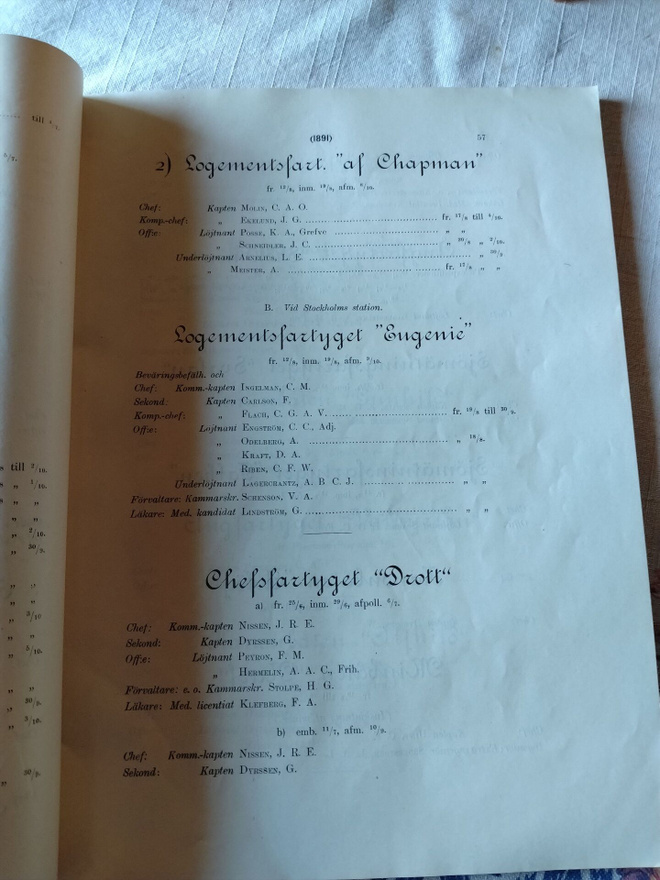 till
(1891)
57
2) Logementsfart. "af Chapman"
fr. 12/8, inm. 18/8, afm. 6/10.
Chef: Kapten MOLIN, C. A. O.
Komp.-chef: „ EKELUND, J. G. ........ fr. 17/8 till 4/10.
Offi:e: Löjtnant POSSE, K. A., Grefve ........ „ „
„ SCHNEIDLER, J. C. ........ „ 20/8 „ 2/10.
Underlöjtnant ARNELIUS, L. E. ........ „ 30/9
„ MEISTER, A. ........ fr. 17/8 „ „
B. Vid Stockholms station.
Logementsfartyget "Eugenie"
fr. 12/8, inm. 19/8, afm. 3/10.
Beväringsbefälh. och
Chef: Komm.-kapten INGELMAN, C. M.
Sekond: Kapten CARLSON, F.
Komp.-chef: „ FLACH, C. G. A. V. ........ fr. 19/8 till 30/9.
Offi:e: Löjtnant ENGSTRÖM, C. C., Adj.
„ ODELBERG, A. ........ „ 18/8.
„ KRAFT, D. A.
„ RIBEN, C. F. W.
Underlöjtnant LAGERCRANTZ, A. B C. J. ........ „ „
Förvaltare: Kammarskr. SCHENSON, V. A.
Läkare: Med. kandidat LINDSTRÖM, G. ........ „ „
Chefsfartyget “Drott“
a) fr. 25/6, inm. 29/6, afpoll. 6/7.
Chef: Komm.-kapten NISSEN, J. R. E.
Sekond: Kapten DYRSSEN, G.
Offi:e: Löjtnant PEYRON, F. M.
„ HERMELIN, A. A. C., Frih.
Förvaltare: e. o. Kammarskr. STOLPE, H. G.
Läkare: Med. licentiat KLEFBERG, F. A.
b) emb. 11/7, afm. 10/9.
Chef: Komm.-kapten NISSEN, J. R. E.
Sekond: Kapten DYRSSEN, G.
s till 2/10.
s „ 1/10.
„ „
„ „
„ 2/10.
„ 30/9.
„ „
„ „
„ 3/10
„ „
„ 5/10.
„ „
„ 30/9.
„ 3/10.
30/9.